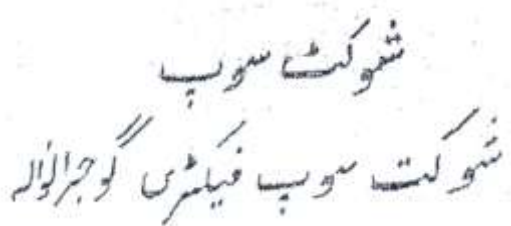 شوکت سوپ
شوکت سوپ فیکٹری گوجرانوالہ